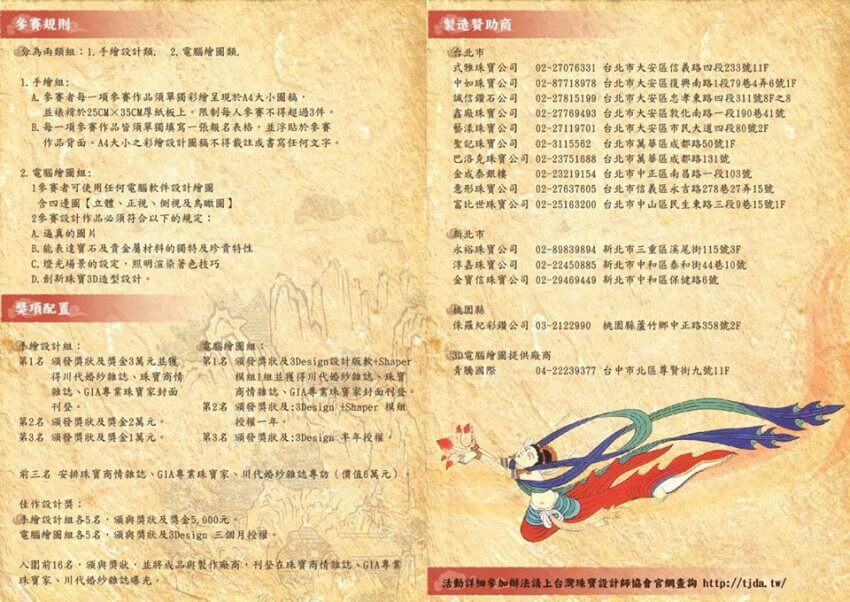 參賽規則
分為兩類組：1.手繪設計類. 2.電腦繪圖類.
1.手繪組:
A.參賽者每一項參賽作品須單獨彩繪呈現於A4大小圖稿，
並裱褙於25CM×35CM厚紙板上。限制每人參賽不得超過3件。
B.每一項參賽作品皆須單獨填寫一張報名表格，並浮貼於參賽
作品背面。A4大小之彩繪設計圖稿不得載註或書寫任何文字。
2.電腦繪圖組:
1參賽者可使用任何電腦軟件設計繪圖
含四邊圖【立體、正視、側視及鳥瞰圖】
2參賽設計作品必須符合以下的規定：
A.逼真的圖片
B.能表達寶石及貴金屬材料的獨特及珍貴特性
C.燈光場景的設定，照明渲染著色技巧
D.創新珠寶3D造型設計。
獎項配置
手繪設計組：
第1名 頒發獎狀及獎金3萬元並獲
得川代婚紗雜誌、珠寶商情
雜誌、GIA專業珠寶家封面
刊登。
第2名 頒發獎狀及獎金2萬元。
第3名 頒發獎狀及獎金1萬元。
電腦繪圖組：
第1名 頒發獎狀及3Design設計版軟+Shaper
模組1組並獲得川代婚紗雜誌、珠寶
商情雜誌、GIA專業珠寶家封面刊登。
第2名 頒發獎狀及:3Design +Shaper 模組
授權一年。
第3名 頒發獎狀及:3Design 半年授權。
前三名 安排珠寶商情雜誌、GIA專業珠寶家、川代婚紗雜誌專訪（價值6萬元）。
佳作設計獎：
手繪設計組各5名，頒與獎狀及獎金5,000元。
電腦繪圖組各5名，頒與獎狀及3Design 三個月授權。
入圍前16名，頒與獎狀，並將成品與製作廠商，刊登在珠寶商情雜誌、GIA專業
珠寶家、川代婚紗雜誌曝光。
製造贊助商
台北市
式雅珠寶公司 02-27076331 台北市大安區信義路四段233號11F
中如珠寶公司 02-87718978 台北市大安區復興南路1段79巷4弄6號1F
誠信鑽石公司 02-27815199 台北市大安區忠孝東路四段311號8F之8
鑫廠珠寶公司 02-27769493 台北市大安區敦化南路一段190巷41號
藝漾珠寶公司 02-27119701 台北市大安區市民大道四段80號2F
聖記珠寶公司 02-3115562 台北市萬華區成都路50號1F
巴洛克珠寶公司 02-23751688 台北市萬華區成都路131號
金成泰銀樓 02-23219154 台北市中正區南昌路一段103號
意形珠寶公司 02-27637605 台北市信義區永吉路278巷27弄15號
富比世珠寶公司 02-25163200 台北市中山區民生東路三段9巷15號1F
新北市
永裕珠寶公司 02-89839894 新北市三重區溪尾街115號3F
淳嘉珠寶公司 02-22450885 新北市中和區泰和街44巷10號
金寶信珠寶公司 02-29469449 新北市中和區保健路6號
桃園縣
侏羅紀彩鑽公司 03-2122990 桃園縣蘆竹鄉中正路358號2F
3D電腦繪圖提供廠商
青騰國際 04-22239377 台中市北區尊賢街九號11F
活動詳細參加辦法請上台灣珠寶設計師協會官網查詢 http://tjda.tw/